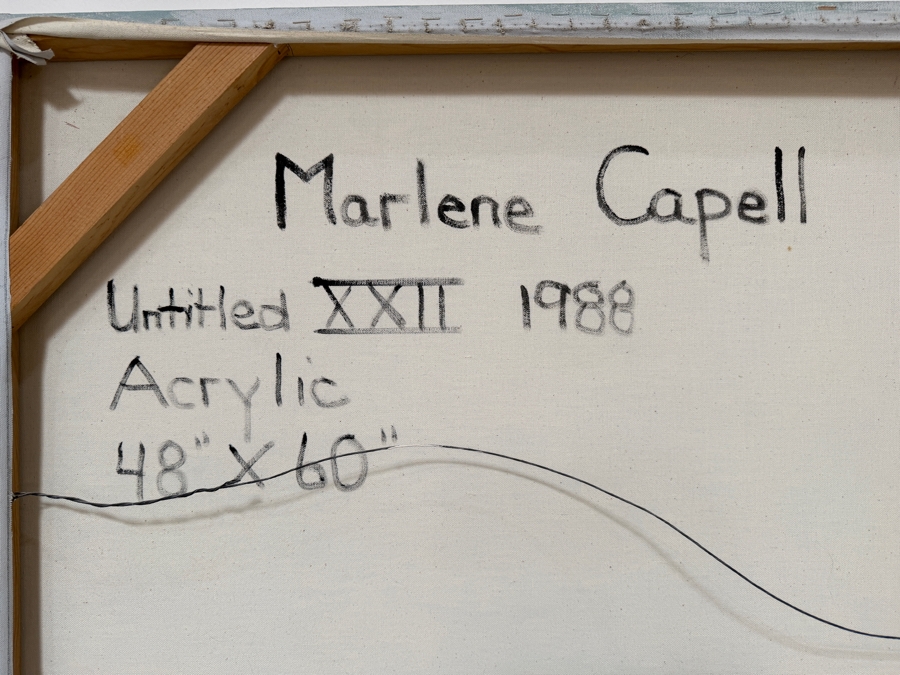 Marlene Capell
Untitled XXII 1988
Acrylic
48" X 60"